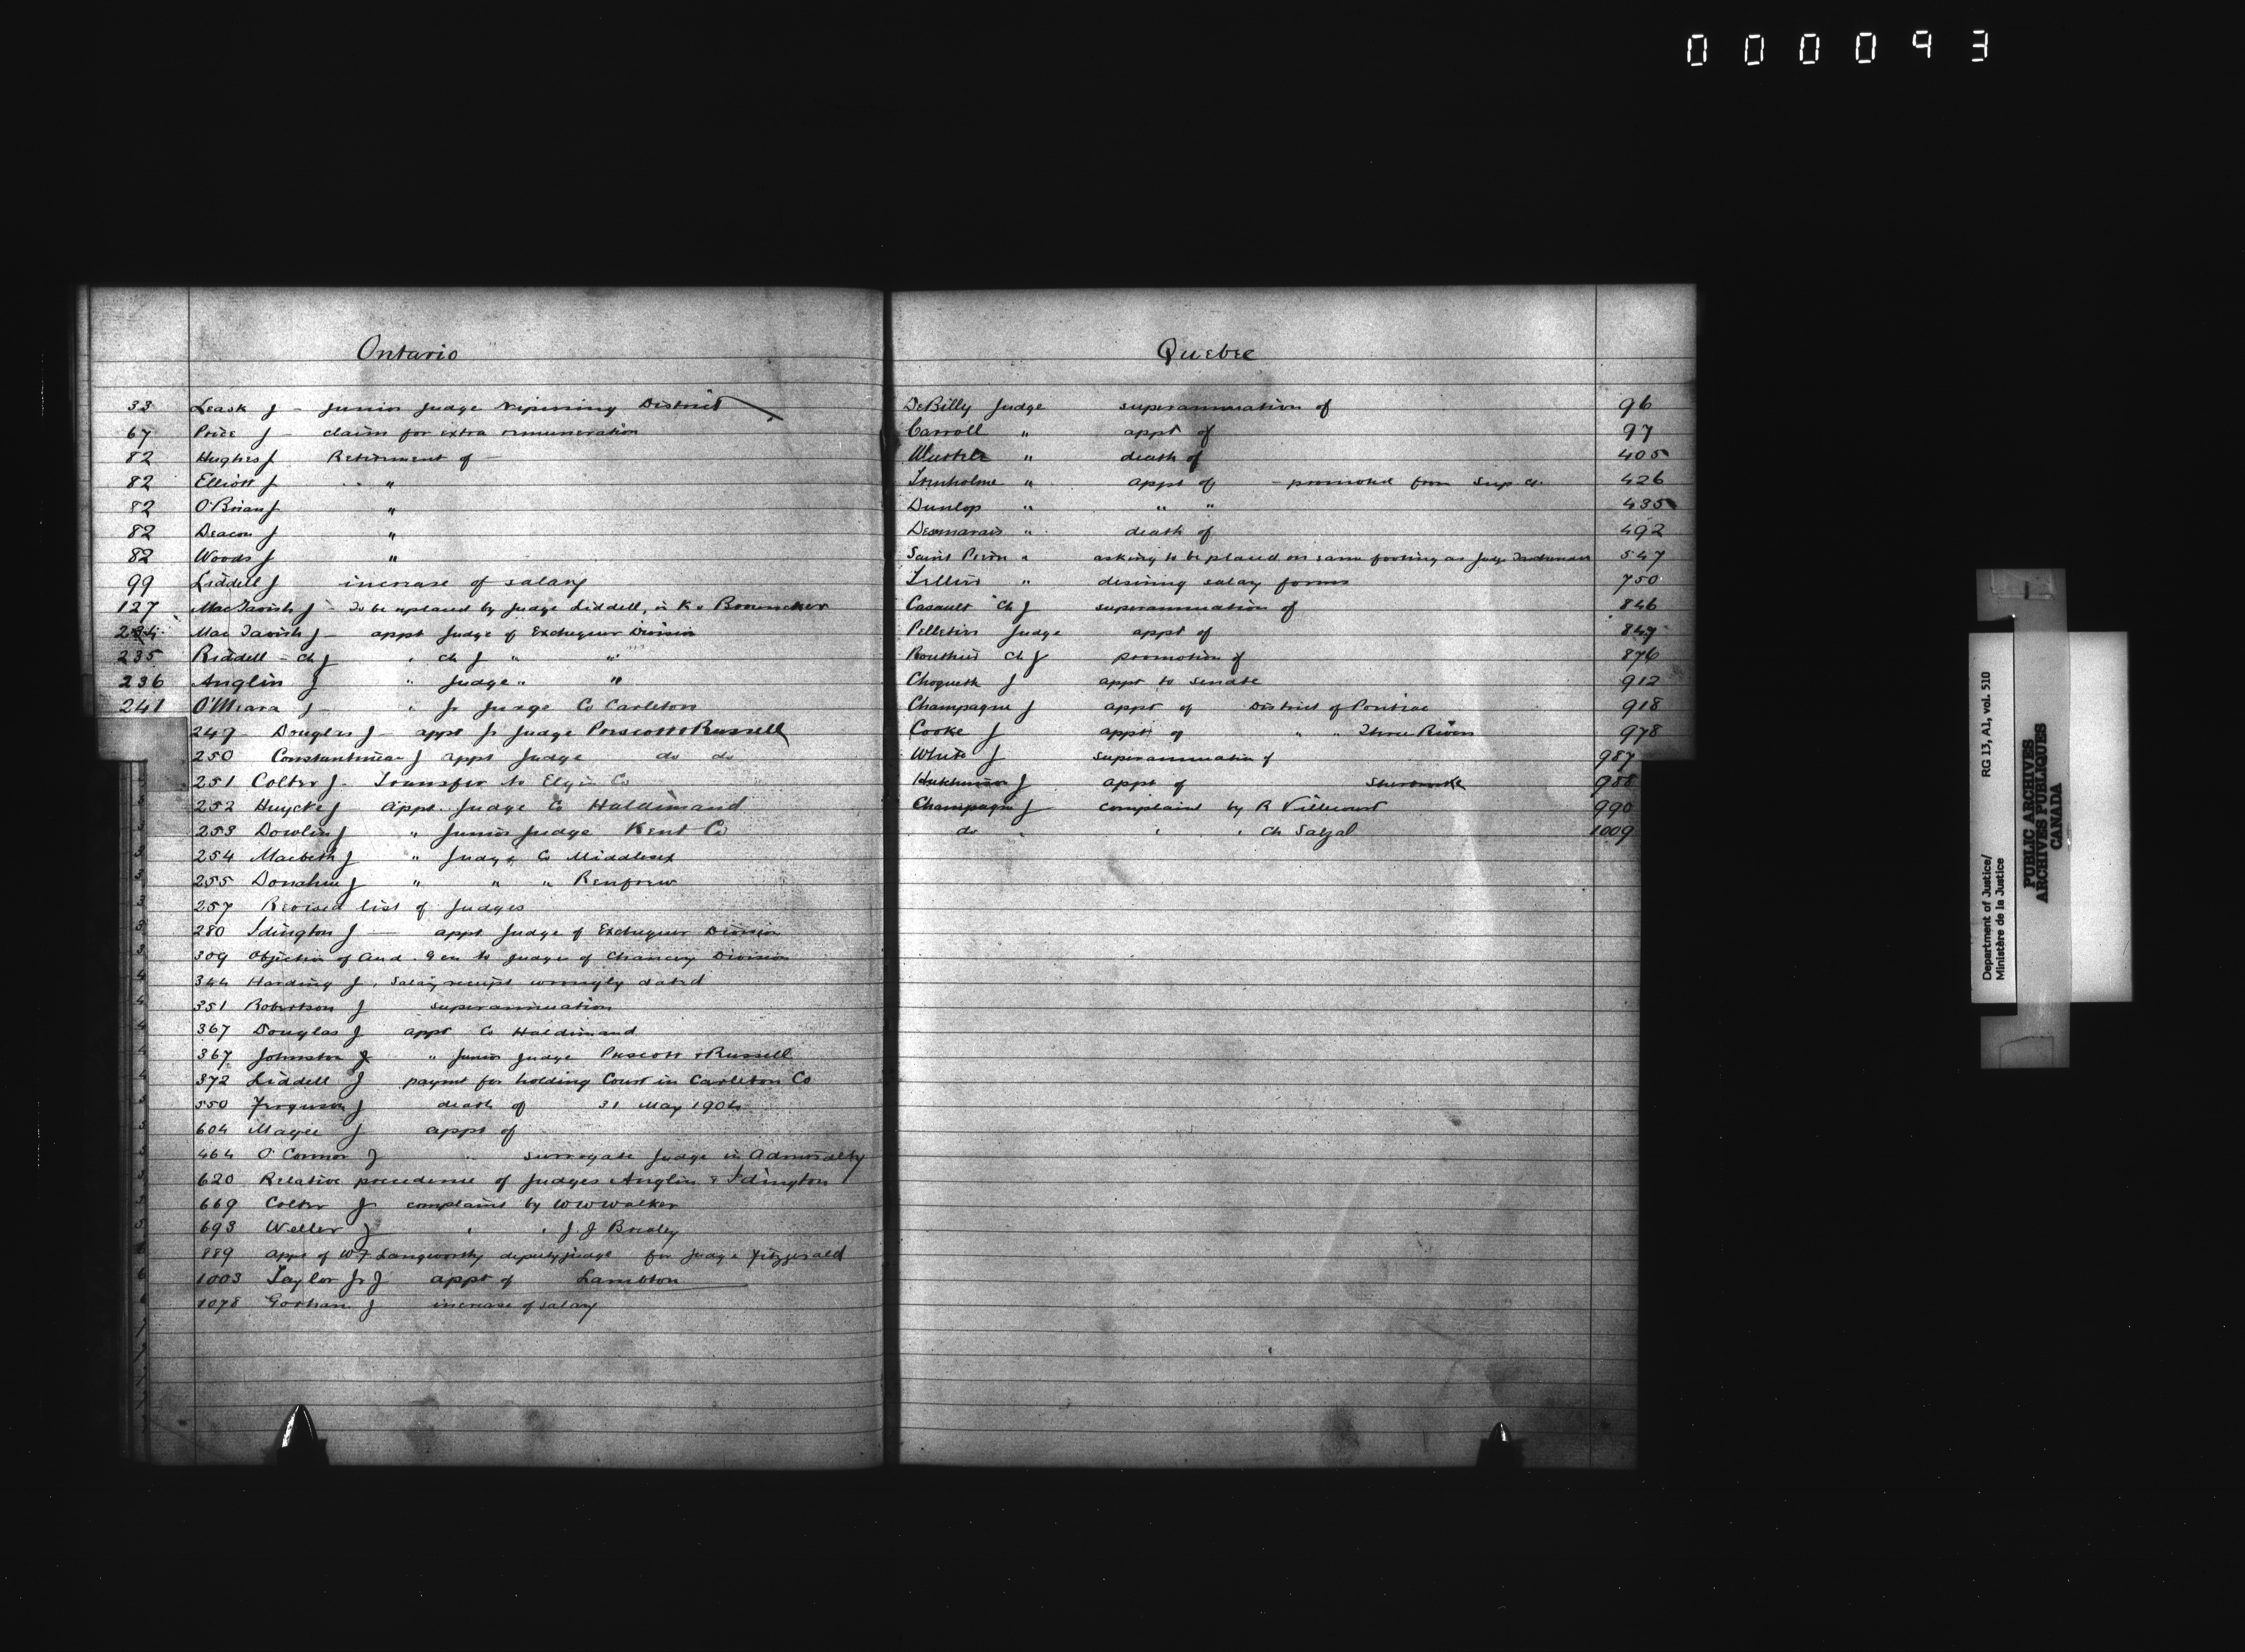 000093
Ontario
33 Leask J - Junior Judge Nipissing District
67 Price J - claim for extra remuneration
82 Hughes J Retirement of -
82 Elliott J "
82 O'Brian J "
82 Deacon J "
82 Woods J "
99 Liddell J increase of salary
127 MacTavish J - To be replaced by Judge Liddell, in
234 MacTavish J - appt Judge of Exchequer Division
235 Riddell - Ch J " Ch J " "
236 Anglin J " Judge " "
241 O'Meara J - " Jr Judge Co Carleton
249 Douglas J - appt Jr Judge Prescott & Russell
250 Constantineau J appt Judge do do
251 Colter J - Transfer to Elgin Co
252 Huycke J - Appt. Judge Co Haldimand
253 Dowlin J " Junior Judge Kent Co
254 Macbeth J " Judge Co Middlesex
255 Donahue J " " " Renfrew
257 Revised list of Judges
280 Idington J - appt Judge of Exchequer Division
309 Objection of Aud. Gen to Judges of Chancery Division
344 Harding J, Salary receipt wrongly dated
351 Robertson J superannuation
367 Douglas J appt Co Haldimand
367 Johnston J " Junior Judge Prescott & Russell
372 Liddell J paymt for holding Court in Carleton Co
550 Ferguson J death of 31 May 1904
604 Magee J appt of
464 O'Connor J " surrogate Judge in Admiralty
620 Relative precedence of Judges Anglin & Idington
669 Colter J complaint by W W Walker
693 Weller J " " J. J
889 appt of W F Langworthy deputy judge for Judge Fitzgerald
1003 Taylor Jr J appt of Lambton
1078 Gorham J increase of salary
Quebec
DeBilly Judge superannuation of 96
Carroll " appt of 97
Wurtele " death of 405
Trenholme " appt of - promoted from Sup Ct. 426
Dunlop " " " 435
Desmarais " death of 492
Saint Pierre " asking to be placed on same footing as Judge 547
Tellier " desiring salary forms 750
Casault Ch J superannuation of 846
Pelletier Judge appt of 847
Routhier Ch J promotion of 876
Choquette J appt to senate 912
Champagne J appt of District of Pontiac 918
Cooke J appt of " " Three Rivers 978
White J superannuation of 987
Hutchinson J appt of Sherbrooke 988
Champagne J complaint by R Villecourt 990
do " " " Ch 1009
Department of Justice/
Ministère de la Justice
RG 13, A1, vol. 510
PUBLIC ARCHIVES
ARCHIVES PUBLIQUES
CANADA